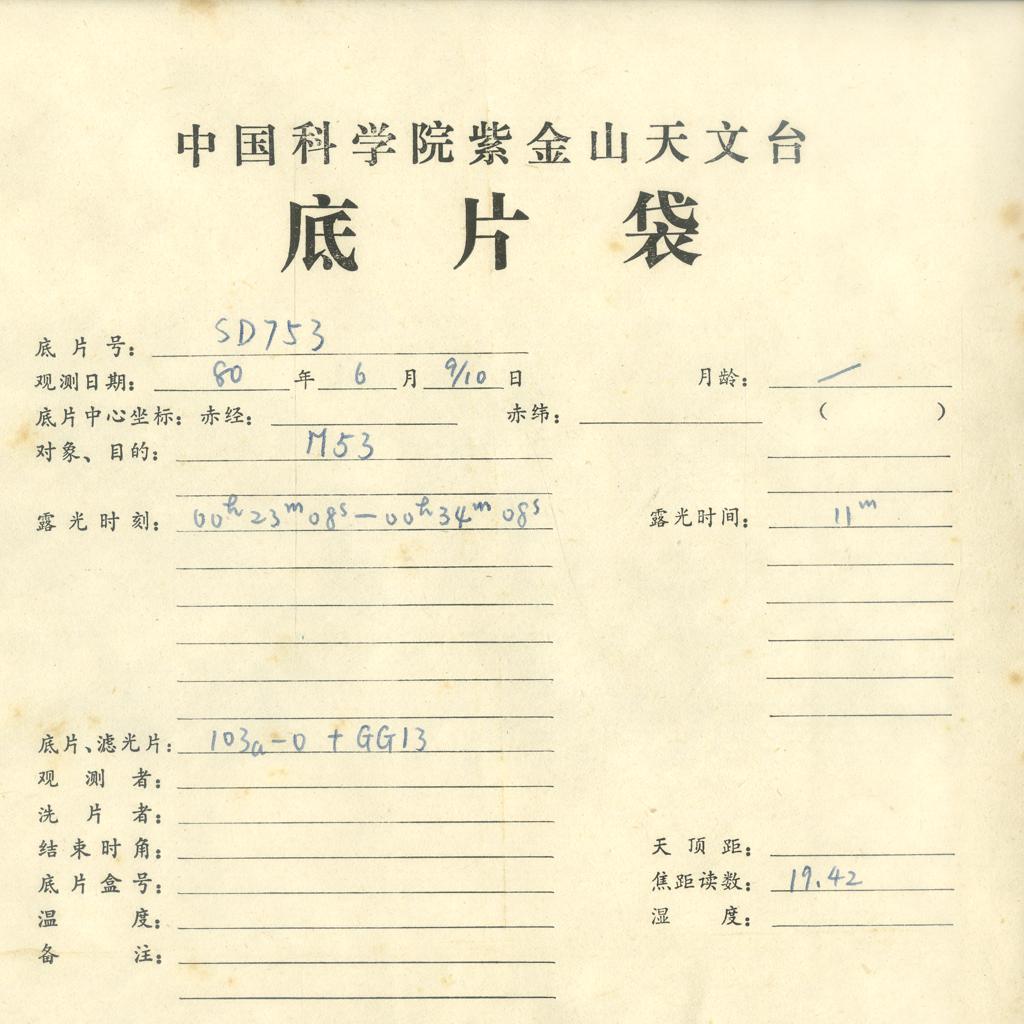 中国科学院紫金山天文台
底片袋
底片号： SD753
观测日期： 80 年 6 月 9/10 日 月龄： /
底片中心坐标：赤经： 赤纬： （ ）
对象、目的： M53
露光时刻： 00h23m08s—00h34m08s 露光时间： 11m
底片、滤光片： 103a-0 + GG13
观测者：
洗片者：
结束时角： 天顶距：
底片盒号： 焦距读数： 19.42
温度： 湿度：
备注：